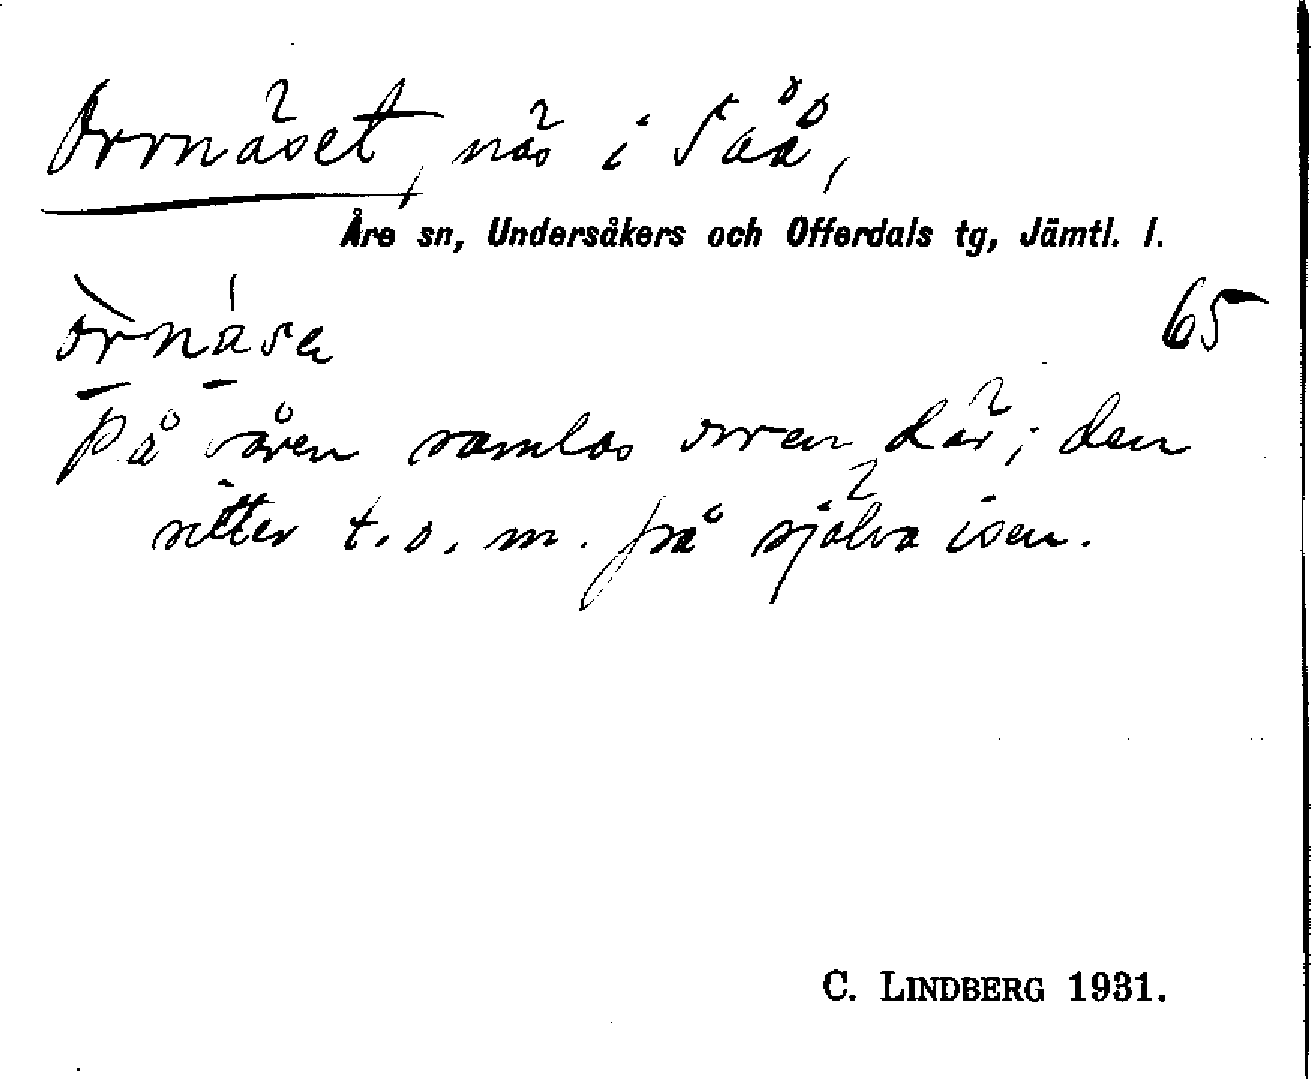 Orrnäset, näs i Såå,
Åre sn, Undersåkers och Offerdals tg, Jämtl. l.
65
På våren samlas orren där; den
sitter t.o.m. på själva isen.
C. LINDBERG 1931.